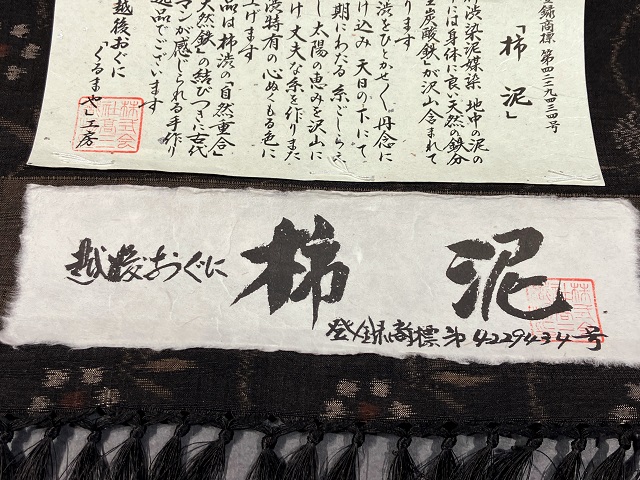 登録商標 第四二二九四三四号
「柿泥」
柿渋染泥媒染 地中の泥の
には身体に良い天然の鉄分
炭酸鉄」が沢山含まれて
ります
渋をひとせく丹念に
け込み 天日の下にて
期にわたる 糸ごしらえ
し 太陽の恵みを沢山に
け 丈夫な糸を作りまた
渋特有の心ぬくもる色に
上げます
品は柿渋の「自然重合」
天然鉄」の結びつきに古代
マンが感じられる手作り
逸品でございます
越後おぐに
「くるまや」工房
越後おぐに 柿泥
登録商標第4229434号